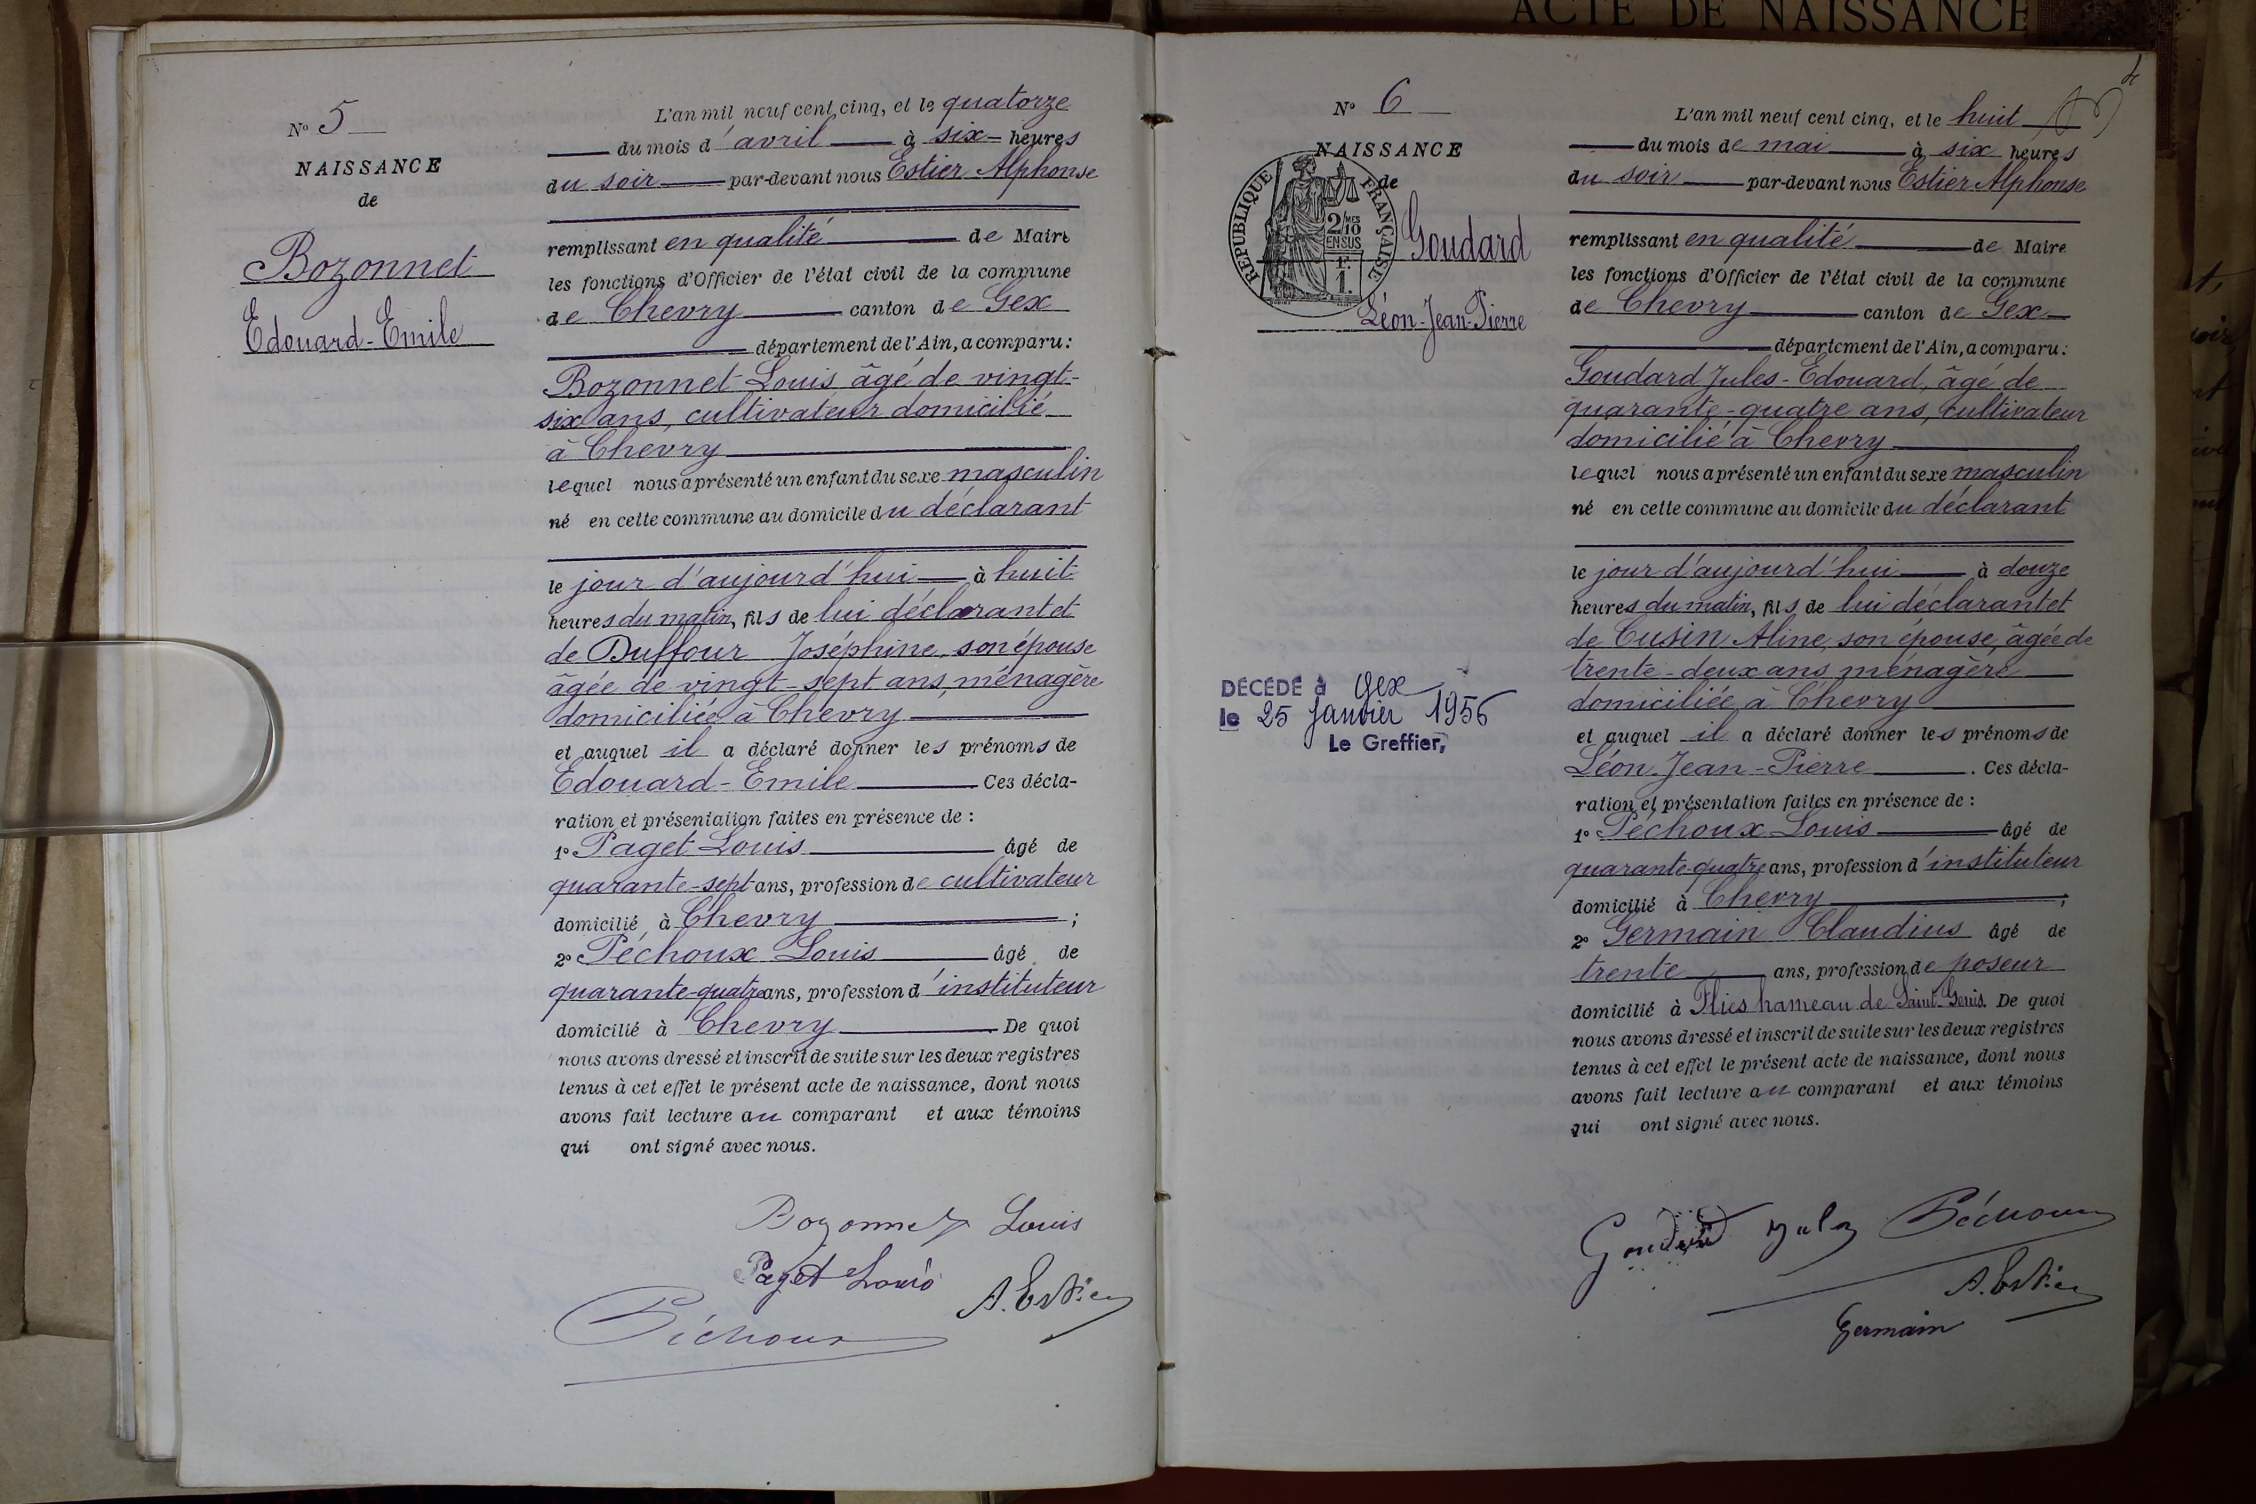 ACTE DE NAISSANCE
N° 5
NAISSANCE
de
Bozonnet
Edouard-Emile
L'an mil neuf cent cinq, et le quatorze
du mois d'avril à six heures
du soir par-devant nous Estier Alphonse
remplissant en qualité de Maire
les fonctions d'Officier de l'état civil de la commune
de Chevry canton de Gex
département de l'Ain, a comparu:
Bozonnet Louis âgé de vingt-
six ans, cultivateur domicilié
à Chevry
lequel nous a présenté un enfant du sexe masculin
né en cette commune au domicile du déclarant
le jour d'aujourd'hui à huit
heures du matin, fils de lui déclarant et
de Duffour Joséphine, son épouse
âgée de vingt-sept ans, ménagère
domiciliée à Chevry
et auquel il a déclaré donner les prénoms de
Edouard-Emile Ces décla-
ration et présentation faites en présence de :
1° Paget Louis âgé de
quarante-sept ans, profession de cultivateur
domicilié à Chevry ;
2° Péchoux Louis âgé de
quarante-quatre ans, profession d'instituteur
domicilié à Chevry De quoi
nous avons dressé et inscrit de suite sur les deux registres
tenus à cet effet le présent acte de naissance, dont nous
avons fait lecture au comparant et aux témoins
qui ont signé avec nous.
Bozonnet Louis
Paget Louis
A. Estier
Péchoux
4
N° 6
NAISSANCE
de
RÉPUBLIQUE FRANÇAISE
2/10 MES
EN SUS
F.
1.
Goudard
Léon-Jean-Pierre
DÉCÉDÉ à Gex
le 25 Janvier 1956
Le Greffier,
L'an mil neuf cent cinq, et le huit
du mois de mai à six heures
du soir par-devant nous Estier Alphonse
remplissant en qualité de Maire
les fonctions d'Officier de l'état civil de la commune
de Chevry canton de Gex
département de l'Ain, a comparu:
Goudard Jules-Edouard, âgé de
quarante-quatre ans, cultivateur
domicilié à Chevry
lequel nous a présenté un enfant du sexe masculin
né en cette commune au domicile du déclarant
le jour d'aujourd'hui à douze
heures du matin, fils de lui déclarant et
de Cusin Aline, son épouse, âgée de
trente-deux ans ménagère
domiciliée à Chevry
et auquel il a déclaré donner les prénoms de
Léon-Jean-Pierre . Ces décla-
ration et présentation faites en présence de :
1° Péchoux Louis âgé de
quarante-quatre ans, profession d'instituteur
domicilié à Chevry ;
2° Germain Claudius âgé de
trente ans, profession de poseur
domicilié à Flies hameau de Saint-Genis. De quoi
nous avons dressé et inscrit de suite sur les deux registres
tenus à cet effet le présent acte de naissance, dont nous
avons fait lecture au comparant et aux témoins
qui ont signé avec nous.
Goudard Jules Péchoux
A. Estier
Germain